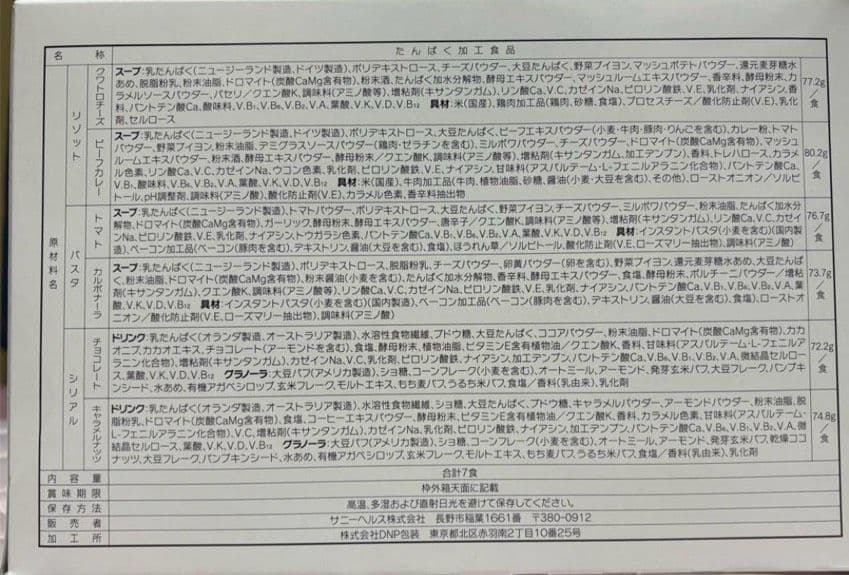 名称 たんぱく加工食品
原材料名
リゾット
クワトロチーズ
スープ:乳たんぱく(ニュージーランド製造、ドイツ製造)、ポリデキストロース、チーズパウダー、大豆たんぱく、野菜ブイヨン、マッシュポテトパウダー、還元麦芽糖水
あめ、脱脂粉乳、粉末油脂、ドロマイト(炭酸CaMg含有物)、粉末酒、たんぱく加水分解物、酵母エキスパウダー、マッシュルームエキスパウダー、香辛料、酵母粉末、カ
ラメルソースパウダー、パセリ/クエン酸K、調味料(アミノ酸等)、増粘剤(キサンタンガム)、リン酸Ca、V.C、カゼインNa、ピロリン酸鉄、V.E、乳化剤、ナイアシン、香
料、パントテン酸Ca、酸味料、V.B₁、V.B₆、V.B₂、V.A、葉酸、V.K、V.D、V.B₁₂ 具材:米(国産)、鶏肉加工品(鶏肉、砂糖、食塩)、プロセスチーズ/酸化防止剤(V.E)、乳化
剤、セルロース
77.2g/食
ビーフカレー
スープ:乳たんぱく(ニュージーランド製造、ドイツ製造)、ポリデキストロース、大豆たんぱく、ビーフエキスパウダー(小麦・牛肉・豚肉・りんごを含む)、カレー粉、トマト
パウダー、野菜ブイヨン、粉末油脂、デミグラスソースパウダー(鶏肉・ゼラチンを含む)、ミルポワパウダー、チーズパウダー、ドロマイト(炭酸CaMg含有物)、マッシュ
ルームエキスパウダー、粉末酒、酵母エキスパウダー、酵母粉末/クエン酸K、調味料(アミノ酸等)、増粘剤(キサンタンガム、加工デンプン)、香料、トレハロース、カラメ
ル色素、リン酸Ca、V.C、カゼインNa、ウコン色素、乳化剤、ピロリン酸鉄、V.E、ナイアシン、甘味料(アスパルテーム・L-フェニルアラニン化合物)、パントテン酸Ca、
V.B₁、酸味料、V.B₆、V.B₂、V.A、葉酸、V.K、V.D、V.B₁₂ 具材:米(国産)、牛肉加工品(牛肉、植物油脂、砂糖、醤油(小麦・大豆を含む)、その他)、ローストオニオン/ソルビ
トール、pH調整剤、調味料(アミノ酸)、酸化防止剤(V.E)、カラメル色素、香辛料抽出物
80.2g/食
パスタ
トマト
スープ:乳たんぱく(ニュージーランド製造)、トマトパウダー、ポリデキストロース、大豆たんぱく、野菜ブイヨン、チーズパウダー、ミルポワパウダー、粉末油脂、たんぱく加水分
解物、ドロマイト(炭酸CaMg含有物)、ガーリック、酵母粉末、酵母エキスパウダー、唐辛子/クエン酸K、調味料(アミノ酸等)、増粘剤(キサンタンガム)、リン酸Ca、V.C、カゼイ
ンNa、ピロリン酸鉄、V.E、乳化剤、ナイアシン、トウガラシ色素、パントテン酸Ca、V.B₁、V.B₆、V.B₂、V.A、葉酸、V.K、V.D、V.B₁₂ 具材:インスタントパスタ(小麦を含む)(国内製
造)、ベーコン加工品(ベーコン(豚肉を含む)、デキストリン、醤油(大豆を含む)、食塩)、ほうれん草/ソルビトール、酸化防止剤(V.E、ローズマリー抽出物)、調味料(アミノ酸)
76.7g/食
カルボナーラ
スープ:乳たんぱく(ニュージーランド製造)、ポリデキストロース、脱脂粉乳、チーズパウダー、卵黄パウダー(卵を含む)、野菜ブイヨン、還元麦芽糖水あめ、大豆たんぱ
く、粉末油脂、ドロマイト(炭酸CaMg含有物)、粉末醤油(小麦を含む)、たんぱく加水分解物、香辛料、酵母エキスパウダー、食塩、酵母粉末、ポルチーニパウダー/増粘
剤(キサンタンガム)、クエン酸K、調味料(アミノ酸等)、リン酸Ca、V.C、カゼインNa、ピロリン酸鉄、V.E、乳化剤、ナイアシン、パントテン酸Ca、V.B₁、V.B₆、V.B₂、V.A、
葉酸、V.K、V.D、V.B₁₂ 具材:インスタントパスタ(小麦を含む)(国内製造)、ベーコン加工品(ベーコン(豚肉を含む)、デキストリン、醤油(大豆を含む)、食塩)、ローストオ
ニオン/酸化防止剤(V.E、ローズマリー抽出物)、調味料(アミノ酸)
73.7g/食
シリアル
チョコレート
ドリンク:乳たんぱく(オランダ製造、オーストラリア製造)、水溶性食物繊維、ブドウ糖、大豆たんぱく、ココアパウダー、粉末油脂、ドロマイト(炭酸CaMg含有物)、カカ
オニブ、カカオエキス、チョコレート(アーモンドを含む)、食塩、酵母粉末、植物油脂、ビタミンE含有植物油/クエン酸K、香料、甘味料(アスパルテーム・L-フェニルア
ラニン化合物)、増粘剤(キサンタンガム)、カゼインNa、V.C、乳化剤、ピロリン酸鉄、ナイアシン、加工デンプン、パントテン酸Ca、V.B₆、V.B₁、V.B₂、V.A、微結晶セルロー
ス、葉酸、V.K、V.D、V.B₁₂ グラノーラ:大豆パフ(アメリカ製造)、ショ糖、コーンフレーク(小麦を含む)、オートミール、アーモンド、発芽玄米パフ、大豆フレーク、パンプキ
ンシード、水あめ、有機アガベシロップ、玄米フレーク、モルトエキス、もち麦パフ、うるち米パフ、食塩/香料(乳由来)、乳化剤
72.2g/食
キャラメルナッツ
ドリンク:乳たんぱく(オランダ製造、オーストラリア製造)、水溶性食物繊維、ショ糖、大豆たんぱく、ブドウ糖、キャラメルパウダー、アーモンドパウダー、粉末油脂、脱
脂粉乳、ドロマイト(炭酸CaMg含有物)、食塩、コーヒーエキスパウダー、酵母粉末、ビタミンE含有植物油/クエン酸K、香料、カラメル色素、甘味料(アスパルテーム・
L-フェニルアラニン化合物)、V.C、増粘剤(キサンタンガム)、カゼインNa、乳化剤、ピロリン酸鉄、ナイアシン、加工デンプン、パントテン酸Ca、V.B₆、V.B₁、V.B₂、V.A、微
結晶セルロース、葉酸、V.K、V.D、V.B₁₂ グラノーラ:大豆パフ(アメリカ製造)、ショ糖、コーンフレーク(小麦を含む)、オートミール、アーモンド、発芽玄米パフ、乾燥ココ
ナッツ、大豆フレーク、パンプキンシード、水あめ、有機アガベシロップ、玄米フレーク、モルトエキス、もち麦パフ、うるち米パフ、食塩/香料(乳由来)、乳化剤
74.8g/食
内容量 合計7食
賞味期限 枠外箱天面に記載
保存方法 高温、多湿および直射日光を避けて保存してください。
販売者 サニーヘルス株式会社 長野市稲葉1661番 〒380-0912
加工所 株式会社DNP包装 東京都北区赤羽南2丁目10番25号